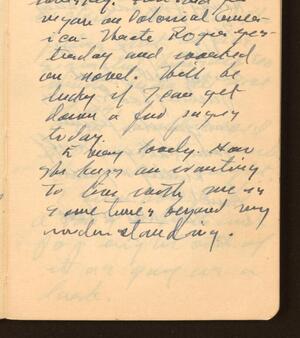 on Colonial Amer-
ica - Wrote Roger yes-
terday and worked
on novel. Will be
lucky if I can get
down a few pages
today.
E very lovely. How
she keeps on wanting
to live with me is
sometimes beyond my
understanding.